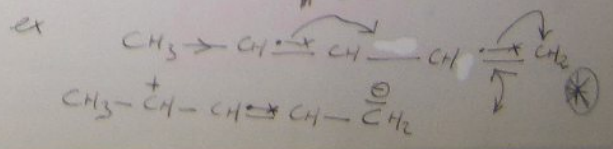 ex CH₃ → CH = CH — CH = CH₂
CH₃ – C⁺H – CH = CH – C̅H₂ ⊖